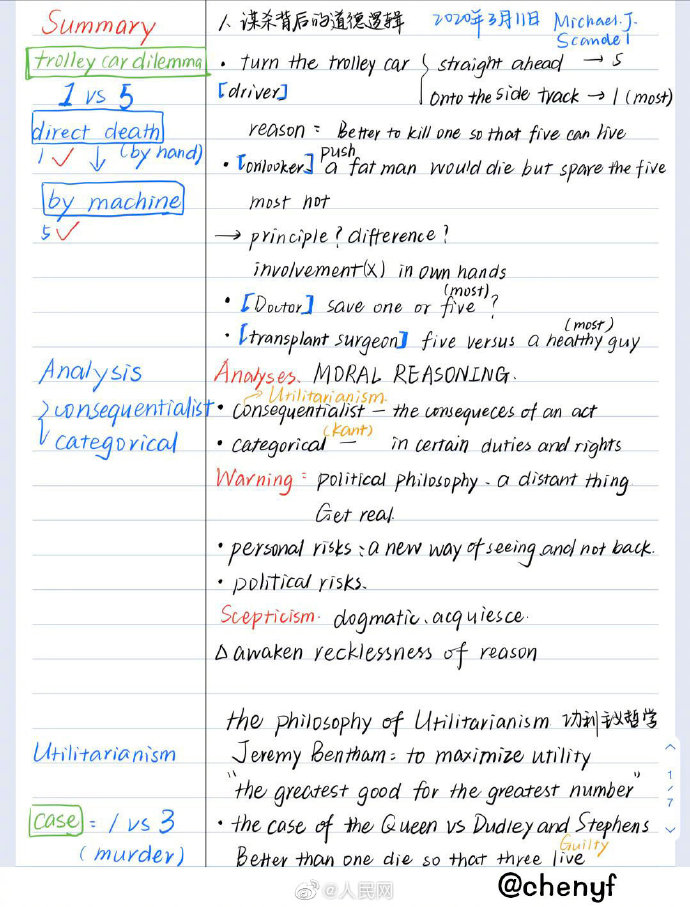 Summary
1. 谋杀背后的道德逻辑 2020年3月11日 Michael.J.
Scandel
trolley car dilemma
• turn the trolley car { straight ahead → 5
1 vs 5
[driver]
onto the side track → 1 (most)
direct death
reason = Better to kill one so that five can live
1 ✓ ↓ (by hand)
push
• [onlooker] a fat man would die but spare the five
by machine
most not
5 ✓
→ principle? difference?
involvement(x) in own hands
(most)
• [Doutor] save one or five?
(most)
• [transplant surgeon] five versus a healthy guy
Analysis
Analyses. MORAL REASONING.
→ Utilitarianism.
consequentialist
• consequentialist — the consequeces of an act
(Kant)
categorical
• categorical — in certain duties and rights
Warning = political philosophy. a distant thing
Get real.
• personal risks: a new way of seeing and not back.
• political risks.
Scepticism. dogmatic. acquiesce.
△ awaken recklessness of reason
the philosophy of Utilitarianism 功利主义哲学
Utilitarianism
Jeremy Bentham = to maximize utility
"the greatest good for the greatest number"
case = 1 vs 3
• the case of the Queen vs Dudley and Stephens
Guilty
(murder)
Better than one die so that three live
1/7
@人民网
@chenyf